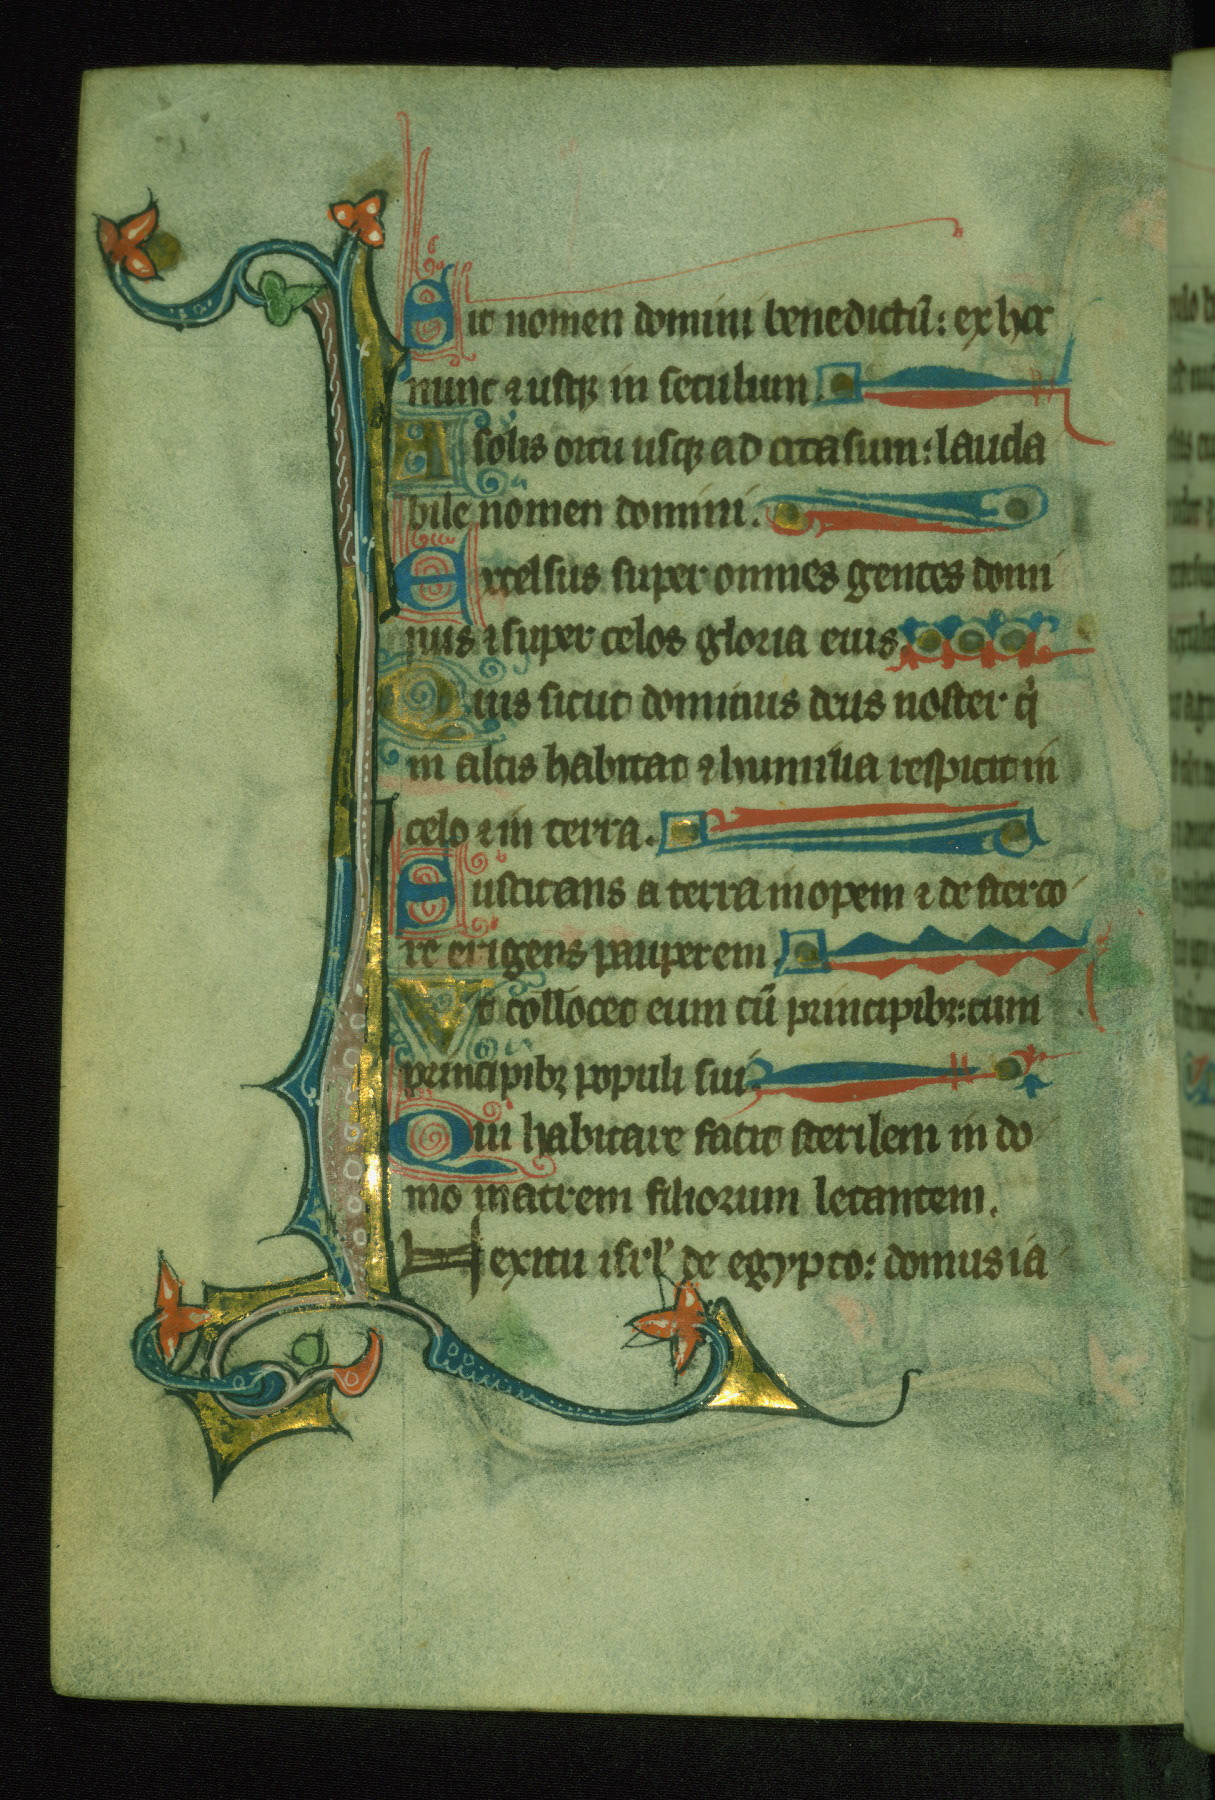 Sit nomen domini benedictū: ex hoc
nunc ⁊ usqꝫ in seculum.
A solis ortu usqꝫ ad occasum: lauda
bile nomen domini.
Excelsus super omnes gentes domi
nus ⁊ super celos gloria eius.
Quis sicut dominus deus noster qͥ
in altis habitat ⁊ humilia respicit in
celo ⁊ in terra.
Suscitans a terra inopem ⁊ de sterco
re erigens pauperem.
Vt collocet eum cū principibꝫ: cum
principibꝫ populi sui.
Qui habitare facit sterilem in do
mo matrem filiorum letantem.
exitu isrl' de egypto: domus ia